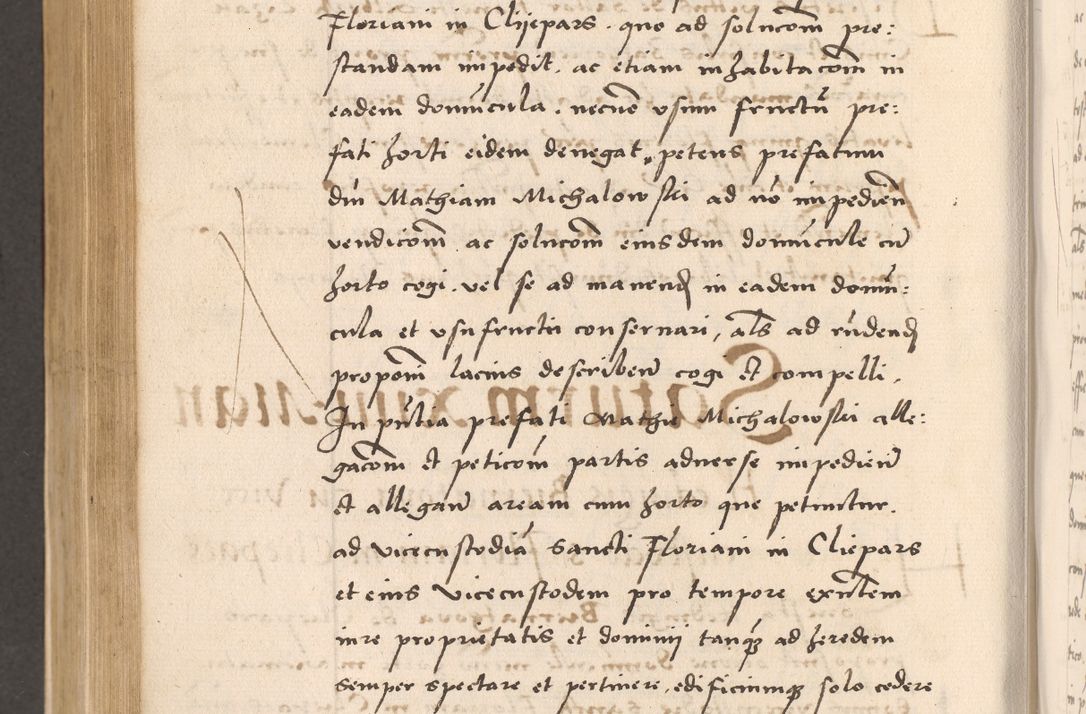 Floriani in Clijepars . quo ad solucom pre:
standam impedit . ac etiam inhabitacom in
eadem domucula . necnon usum fructu pre:
fati horti eidem denegat, petens prefatum
dm Mathiam Michalowski ad no impediend
vendicom ac solucom eiusdem domucule cu
horto cogi . vel se ad manend in eadem domu:
cula et usufructu conservari, als ad
propom lacius describend cogi et compelli,
In pntia prefati Mathie Michalowski alle:
gacom et peticom partis adverse impediend
et allegand aream cum horto que petuntur.
ad vicecustodia Sancti Floriani in Cliepars
et eius Vicecustodem pro tempore exntem
iure proprietatis et dominij tanq ad heredem
semper spectare et pertinere, edificiumq solo cedere